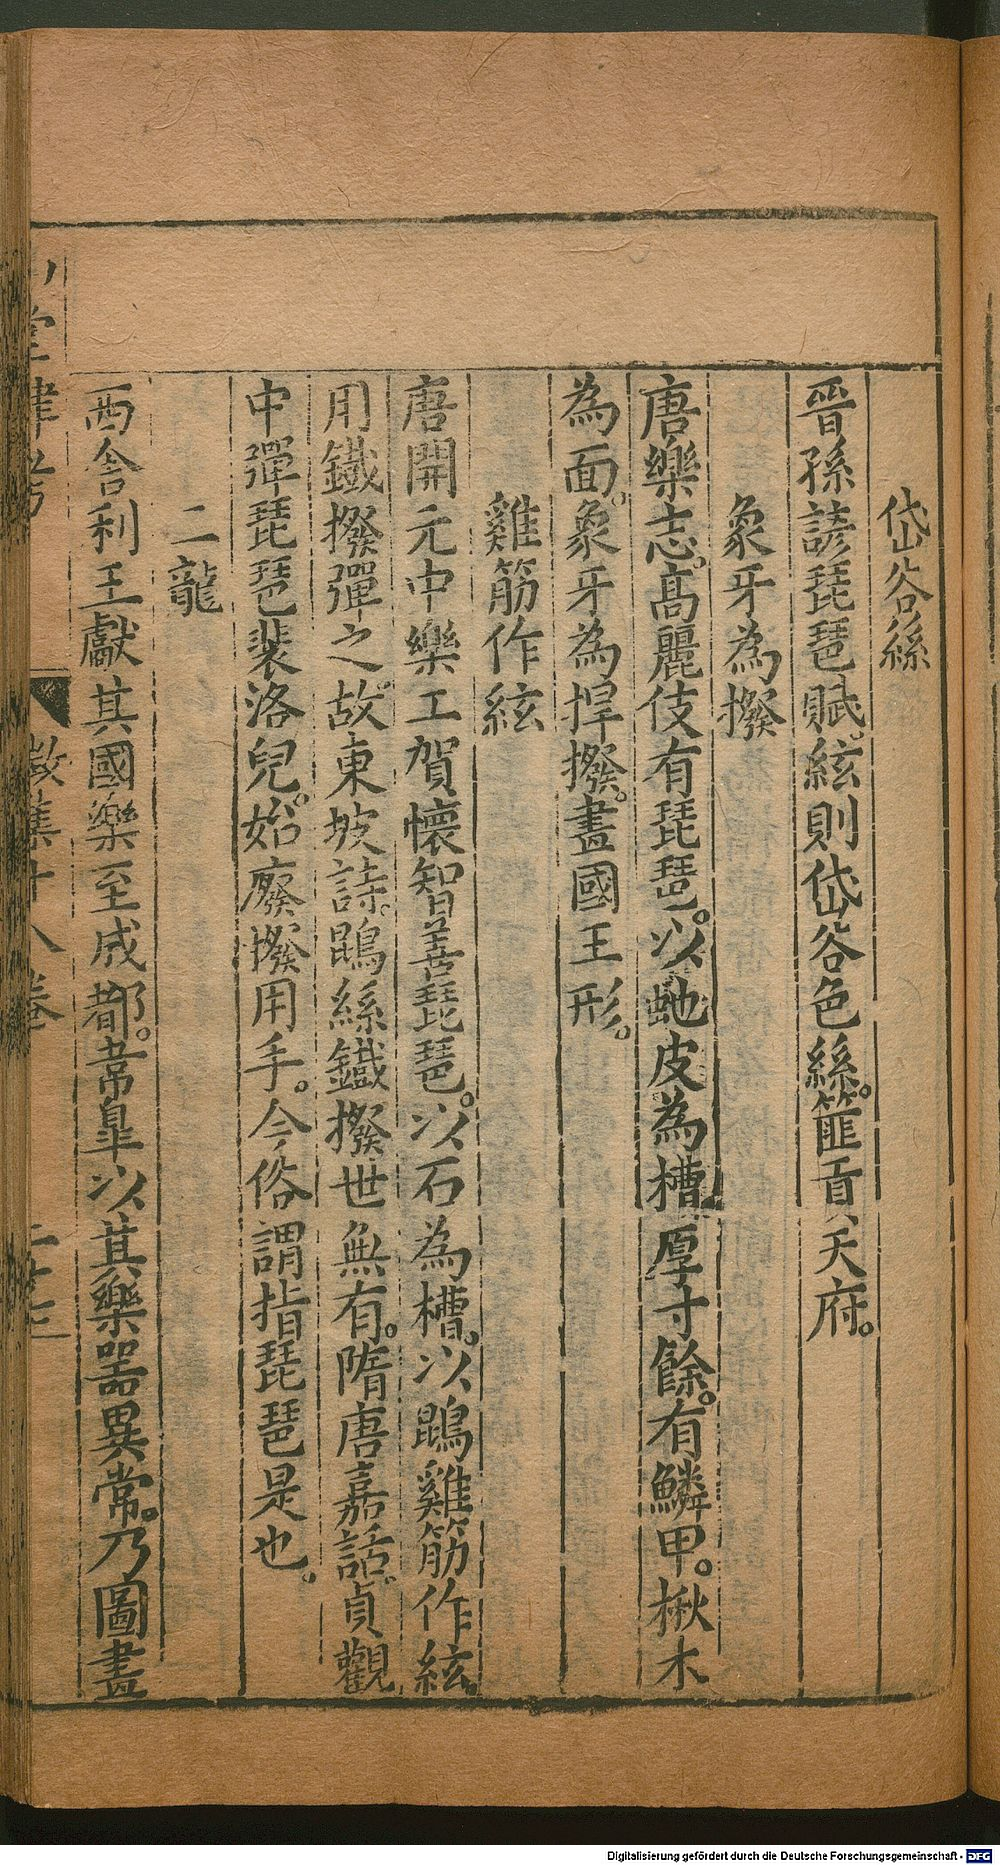 岱谷絲
晉孫諺琵琶賦。絃則岱谷色絲。篚貢天府。
象牙為撥
唐樂志。髙麗伎有琵琶。以虵皮為槽。厚寸餘。有鱗甲。楸木
為面。象牙為捍撥。畫國王形。
雞筋作絃
唐開元中樂工賀懷智善琵琶。以石為槽。以鵾雞筋作絃。
用鐵撥彈之。故東坡詩。鵾絲鐵撥世無有。隋唐嘉話。貞觀
中彈琵琶裴洛兒。始廢撥用手。今俗謂指琵琶是也。
二龍
西舍利王獻其國樂至成都。韋臯以其樂器異常。乃圖畫
堂肆考
徵集十八卷
Digitalisierung gefördert durch die Deutsche Forschungsgemeinschaft - DFG